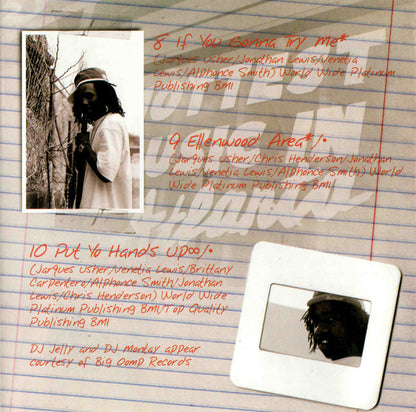 8 If You Gonna Try Me*
(Jarques Usher/Jonathan Lewis/Venetia
Lewis/Alphonce Smith) World Wide Platinum
Publishing BMI
9 Ellenwood Area*/•
(Jarques Usher/Chris Henderson/Jonathan
Lewis/Venetia Lewis/Alphonce Smith) World
Wide Platinum Publishing BMI
10 Put Yo Hands Up∞/•
(Jarques Usher/Venetia Lewis/Brittany
Carpentero/Alphonce Smith/Jonathan
Lewis/Chris Henderson) World Wide
Platinum Publishing BMI/Top Quality
Publishing BMI
DJ Jelly and DJ Montay appear
courtesy of Big Oomp Records